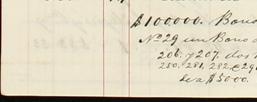 $100000. Bono
Nº 29 un Bono d
206. y 207. dos
280. 281. 282. e 29
de a $5000.